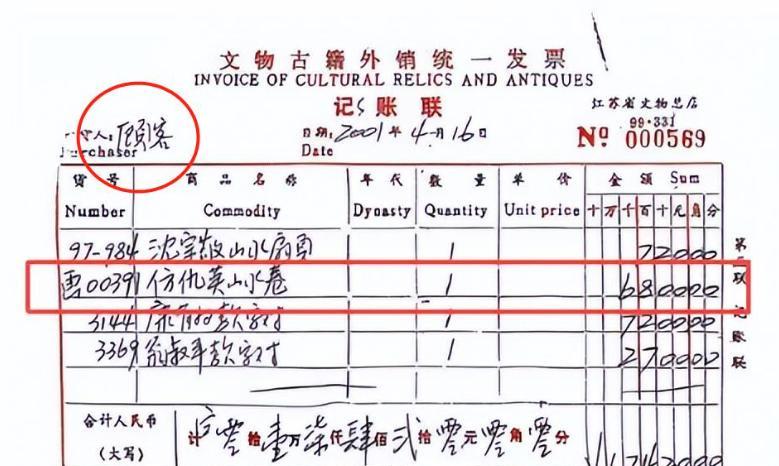 文物古籍外销统一发票
INVOICE OF CULTURAL RELICS AND ANTIQUES
记账联
江苏省文物总店
99·331
人: 顾客 日期: 2001年4月16日 Nº 000569
Purchaser Date
货号 商品名称 年代 数量 单价 金额 Sum
Number Commodity Dynasty Quantity Unit price 十万千百十元角分
97-984 沈宗敬山水扇页 1 72000
00391 仿仇英山水卷 1 680000
3144 款字对 1 720000
3369 翁叔平款字对 1 270000
第 联 记账联
合计人民币
(大写) 计 零拾壹万柒仟肆佰贰拾零元零角零分